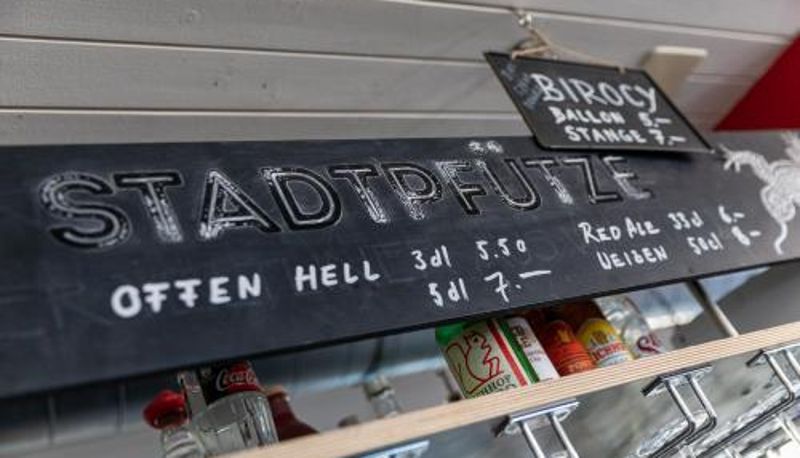 BIROCY
BALLON 5.–
STANGE 7.–
STADTPFÜTZE
OFFEN HELL 3dl 5.50
5dl 7.–
RED ALE 33cl 6.–
WEIZEN 50cl 8.–
Coca-Cola